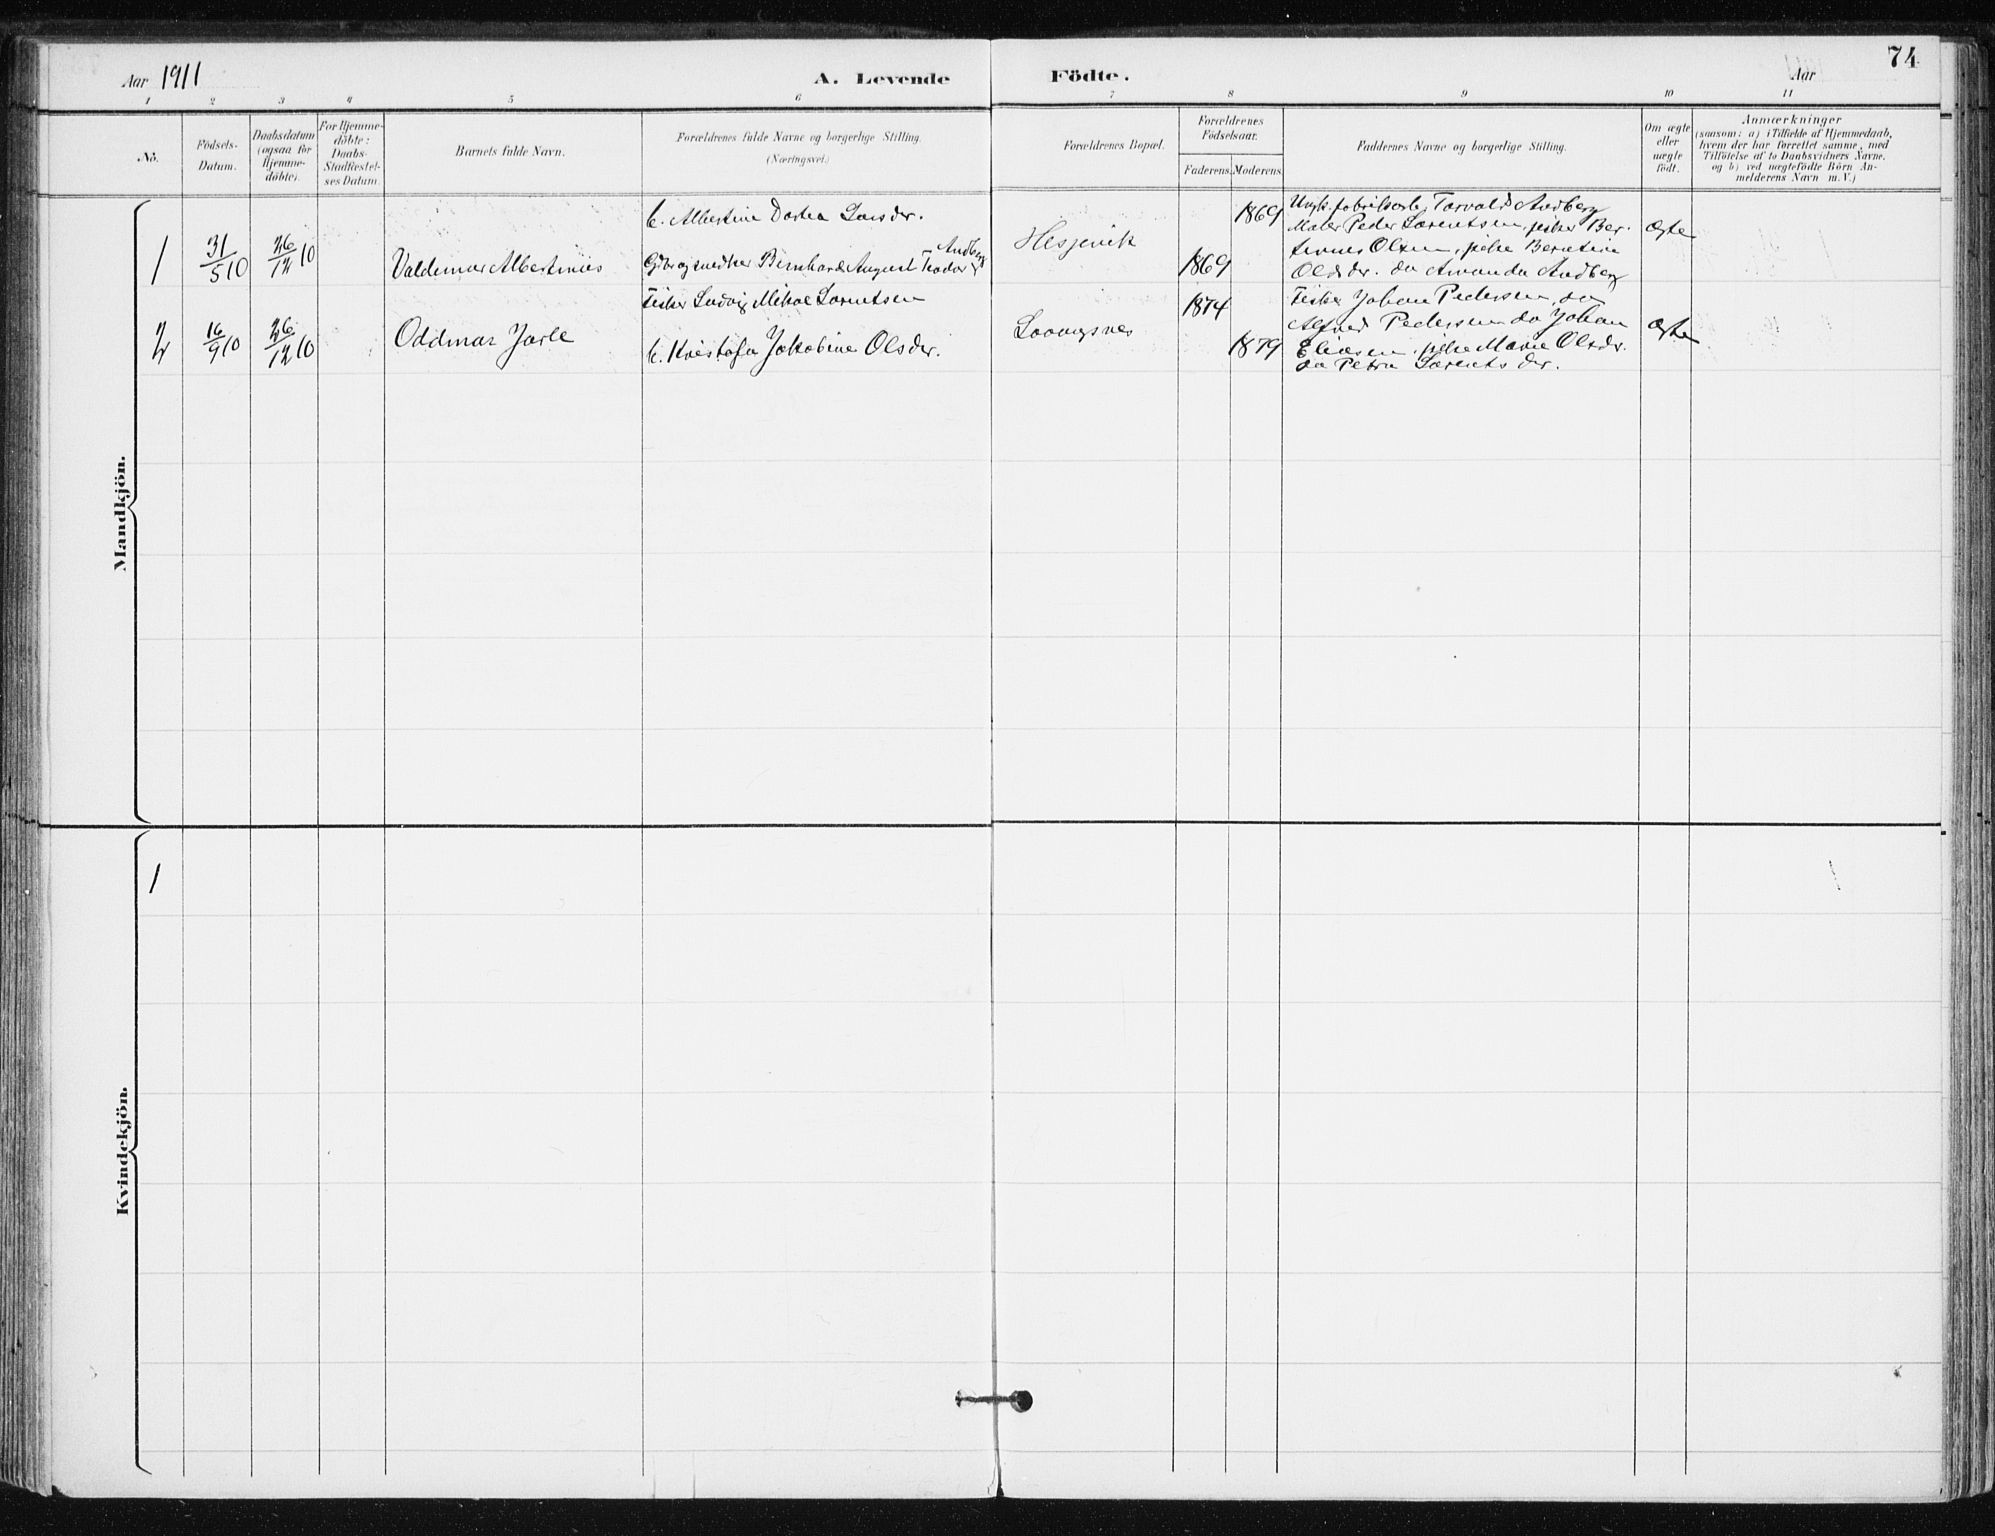 74
Aar 1911
A. Levende Födte.
Aar
1 2 3 4 5 6 7 8 9 10 11
No.
Födsels-
Datum.
Daabsdatum
(ogsaa for
Hjemme-
döbte).
For Hjemme-
döbte:
Daabs-
Stadfæstel-
ses Datum.
Barnets fulde Navn.
Forældrenes fulde Navne og borgerlige Stilling.
(Næringsvei.)
Forældrenes Bopæl.
Forældrenes
Födselsaar.
Faderens. Moderens.
Faddernes Navne og borgerlige Stilling.
Om ægte
eller
uægte
födt.
Anmærkninger
(saasom: a) i Tilfælde af Hjemmedaab,
hvem der har forrettet samme, med
Tilföielse af to Daabsvidners Navne,
og b) ved uægtefödte Börn An-
melderens Navn m. V.)
Mandkjön.
1
31/5 10
26/12 10
Valdemar Albertinius
Albertine Dortea Larsdr.
Bernhard August Teodor Andberg
Hesjevik
1869
1869
Torvald Andberg
Maler Peder Lorentsen, fisker Ber-
Olsen, pike Berntine
Olsdr. do Amanda Andberg
ægte
2
16/9 10
26/12 10
Oddmar Jarle
Fisker Ludvig Mikal Lorentsen
Kristofa Jakobine Olsdr.
1874
1879
Fisker Johan Pedersen, do
Alfred Pedersen do Johan
Eliasen, pike Marie Olsdr.
do Petra Lorentsdr.
ægte
Kvindekjön.
1